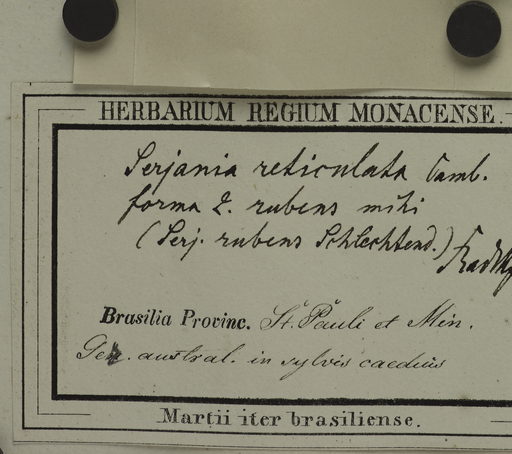 HERBARIUM REGIUM MONACENSE.
Serjania reticulata Camb.
forma 2. rubens mihi
(Serj. rubens Schlechtend.) Radlk
Brasilia Provinc. St. Pauli et Min.
Gen. austral. in sylvis caeduis
Martii iter brasiliense.